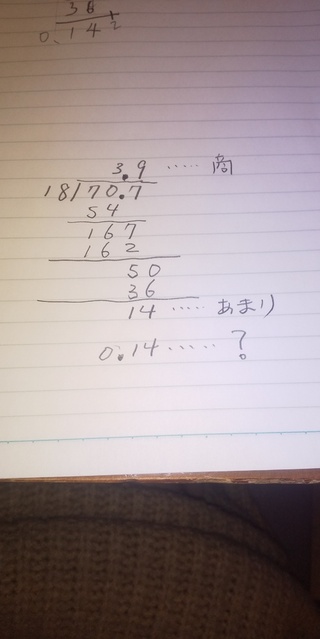 36
0.142
3.9 ..... 商
18)70.7
54
167
162
50
36
14 ..... あまり
0.14 ...... ?